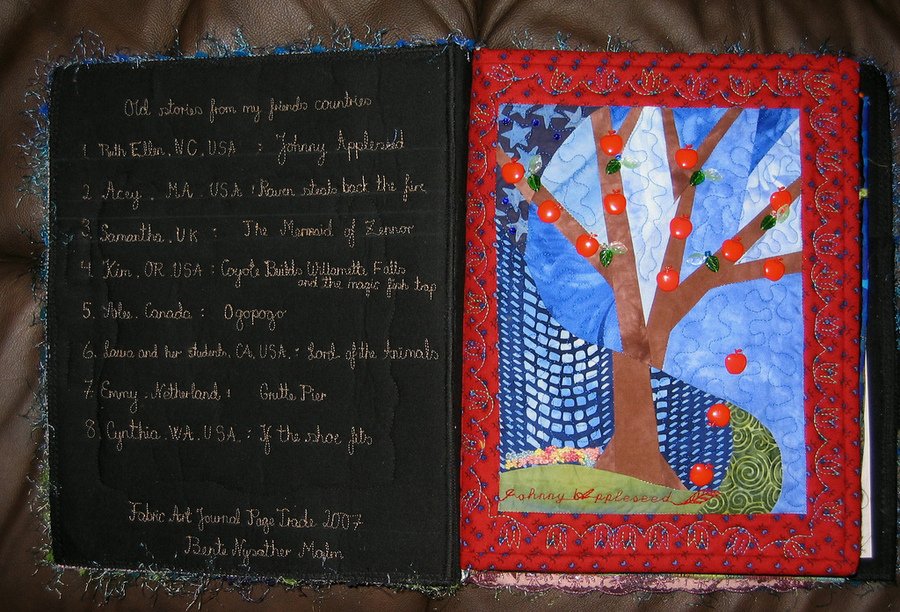 Old stories from my friends countries
1. Ruth Ellen. NC. USA : Johnny Appleseed
2. Acey. MA. USA : Raven steals back the fire
3. Samantha. UK : The Mermaid of Zennor
4. Kim. OR. USA : Coyote Builds Willamette Falls
and the magic fish trap
5. Canada : Ogopogo
6. Laura and her students. CA. USA. : Lord of the Animals
7. Emmy. Netherland : Grutte Pier
8. Cynthia. WA. USA. : If the shoe fits
Fabric Art Journal Page Trade 2007
Bente Malm
Johnny Appleseed